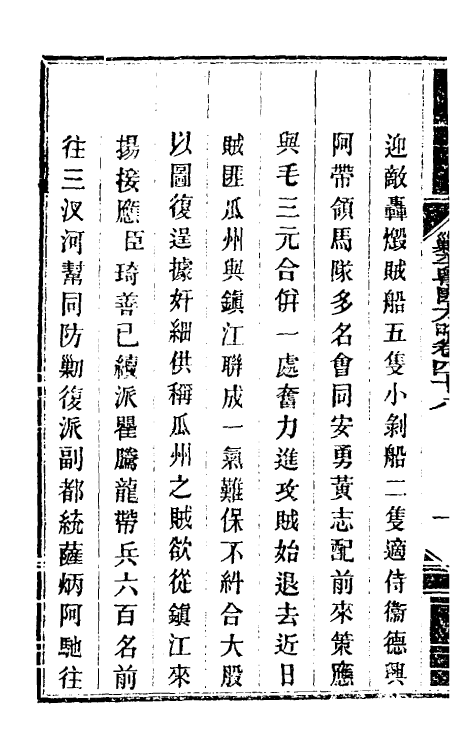 迎敵轟燬賊船五隻小剝船二隻適侍衞德興
阿帶領馬隊多名會同安勇黃志配前來策應
與毛三元合倂一處奮力進攻賊始退去近日
賊匪瓜州與鎭江聯成一氣難保不糾合大股
以圖復逞據奸細供稱瓜州之賊欲從鎭江來
揚接應臣琦善已續派瞿騰龍帶兵六百名前
往三汊河幫同防勦復派副都統薩炳阿馳往